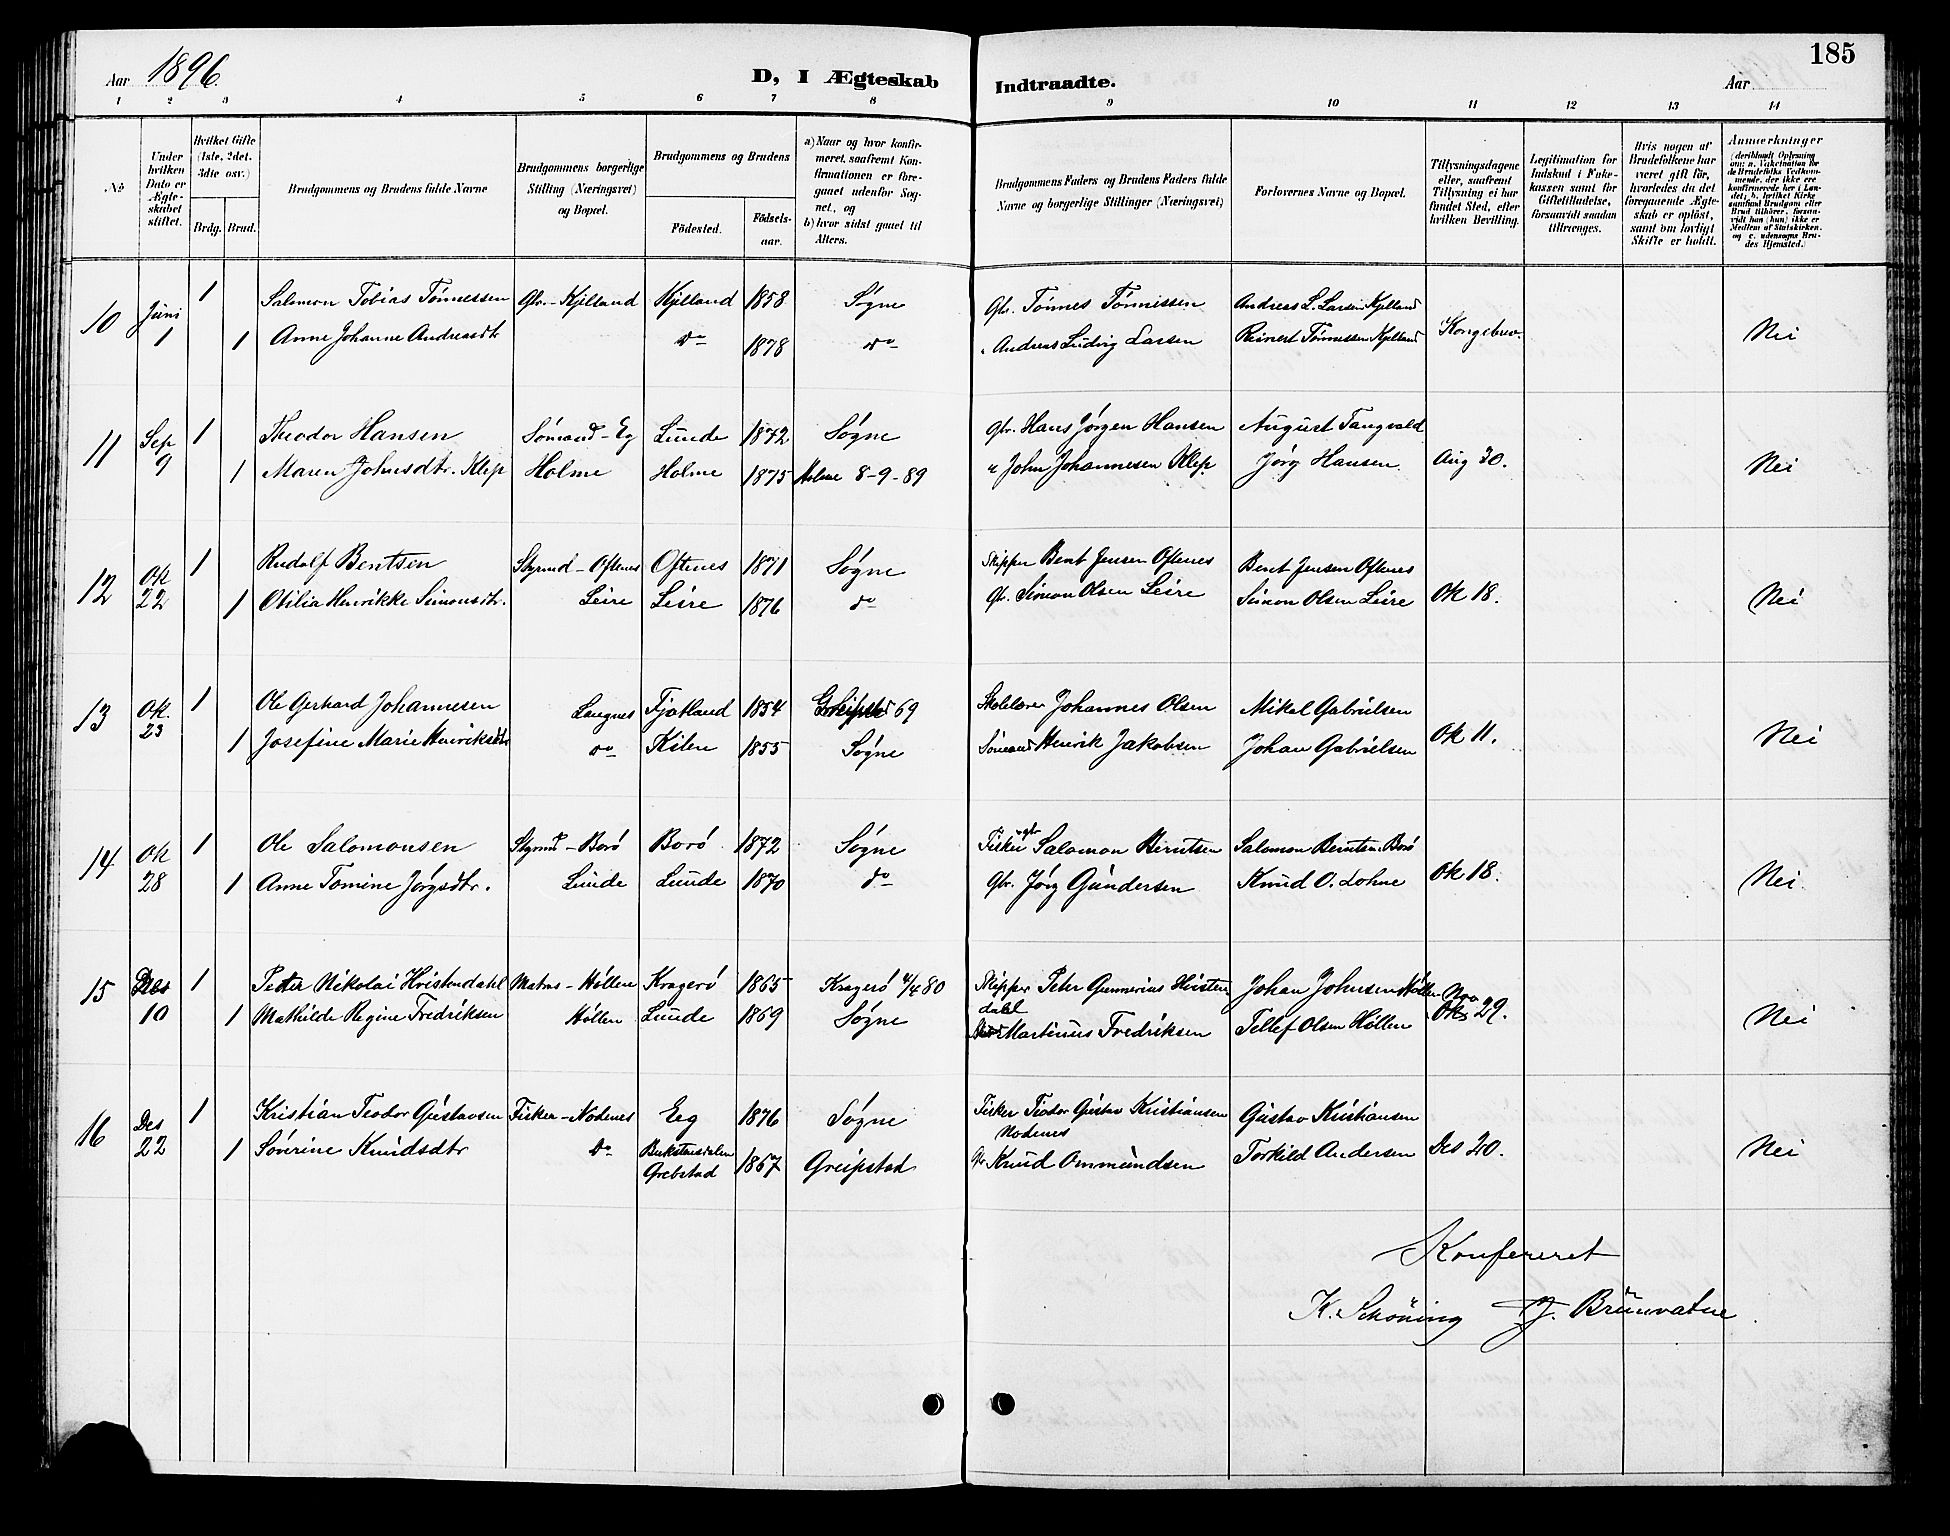 185
Aar 1896. D, I Ægteskab Indtraadte. Aar
1 2 3 4 5 6 7 8 9 10 11 12 13 14
No
Under hvilken Dato er Ægteskabet stiftet.
Hvilket Gifte (1ste, 2det. 3die osv.)
Brdg. Brud.
Brudgommens og Brudens fulde Navne
Brudgommens borgerlige Stilling (Næringsvei) og Bopæl.
Brudgommens og Brudens
Födested.
Födselsaar.
a) Naar og hvor konfirmeret, saafremt Konfirmationen er foregaaet udenfor Sognet, og
b) hvor sidst gaaet til Alters.
Brudgommens Faders og Brudens Faders fulde Navne og borgerlige Stillinger (Næringsvei)
Forlovernes Navne og Bopæl.
Tillysningsdagene eller, saafremt Tillysning ei har fundet Sted, efter hvilken Bevilling.
Legitimation for Indskud i Enkekassen samt for Giftetilladelse, forsaavidt saadan tiltrænges.
Hvis nogen af Brudefolkene har været gift før, hvorledes da det foregaaende Ægteskab er oplöst, samt om lovligt Skifte er holdt.
Anmærkninger (deriblandt Oplysning om: a. Vakcination for de Brudefolks Vedkommende, der ikke ere konfirmerede her i Landet; b. hvilket Kirkesamfund Brudgom eller Brud tilhører, forsaavidt han (hun) ikke er Medlem af Statskirken. og c. udensogns Brudes Hjemsted.)
10 Juni 1 1 Salomon Tobias Tønnessen Gbr. - Kjelland Kjelland 1858 Søgne Gbr. Tønnes Tønnessen Andreas L. Larsen Kjelland Kongebrev.
1 Anne Johanne Andreasdtr do 1878 do " Andreas Ludvig Larsen Reinert Tønnessen Kjelland Nei
11 Sep 9 1 Theodor Hansen Sømand - Eg Lunde 1872 Søgne Gbr. Hans Jørgen Hansen August Tangvald
1 Maren Johnsdtr. Klep Holme Holme 1875 Holme 8-9-89 " John Johannesen Klep Jørg Hansen Aug 30. Nei
12 Ok 22 1 Rudolf Bentsen Styrmd - Oftenes Oftenes 1871 Søgne Skipper Bent Jensen Oftenes Bent Jensen Oftenes
1 Otilia Henrikke Simonsdtr. Leire Leire 1876 do Gbr. Simon Olsen Leire Simon Olsen Leire Ok 18. Nei
13 Ok. 23 1 Ole Gerhard Johannesen Langnes Fjotland 1854 69 Skolelærer Johannes Olsen Mikal Gabrielsen
1 Josefine Marie Henriksdtr do Kilen 1855 Søgne Sømand Henrik Jakobsen Johan Gabrielsen Ok 11. Nei
14 Ok 28 1 Ole Salomonsen Styrmd - Borø Borø 1872 Søgne Fisker gbr Salomon Berntsen Salomon Berntsen Borø
1 Anne Tomine Jørgsdtr. Lunde Lunde 1870 do Gbr. Jørg Gundersen Knud O. Lohne Ok 18. Nei
15 Des 10 1 Petter Nikolai Hvistendahl Matros - Høllen Kragerø 1865 Kragerø 4/4 80 Skipper Peter Gunnerius Hvistendahl Johan Johnsen Høllen Nov 29.
1 Mathilde Regine Fredriksen Høllen Lunde 1869 Søgne Martinius Fredriksen Tellef Olsen Høllen Nei
16 Des 22 1 Kristian Teodor Gustavsen Fisker - Nodenes Eeg 1876 Søgne Fisker Teodor Gustav Kristiansen Nodenes Gustav Kristiansen
1 Sørine Knudsdtr do Bukstensdalen Grebstad 1867 Greipstad Gbr Knud Ommundsen Torkild Andersen Des 20. Nei
Konfereret
K. Schöning J. Brunvatne